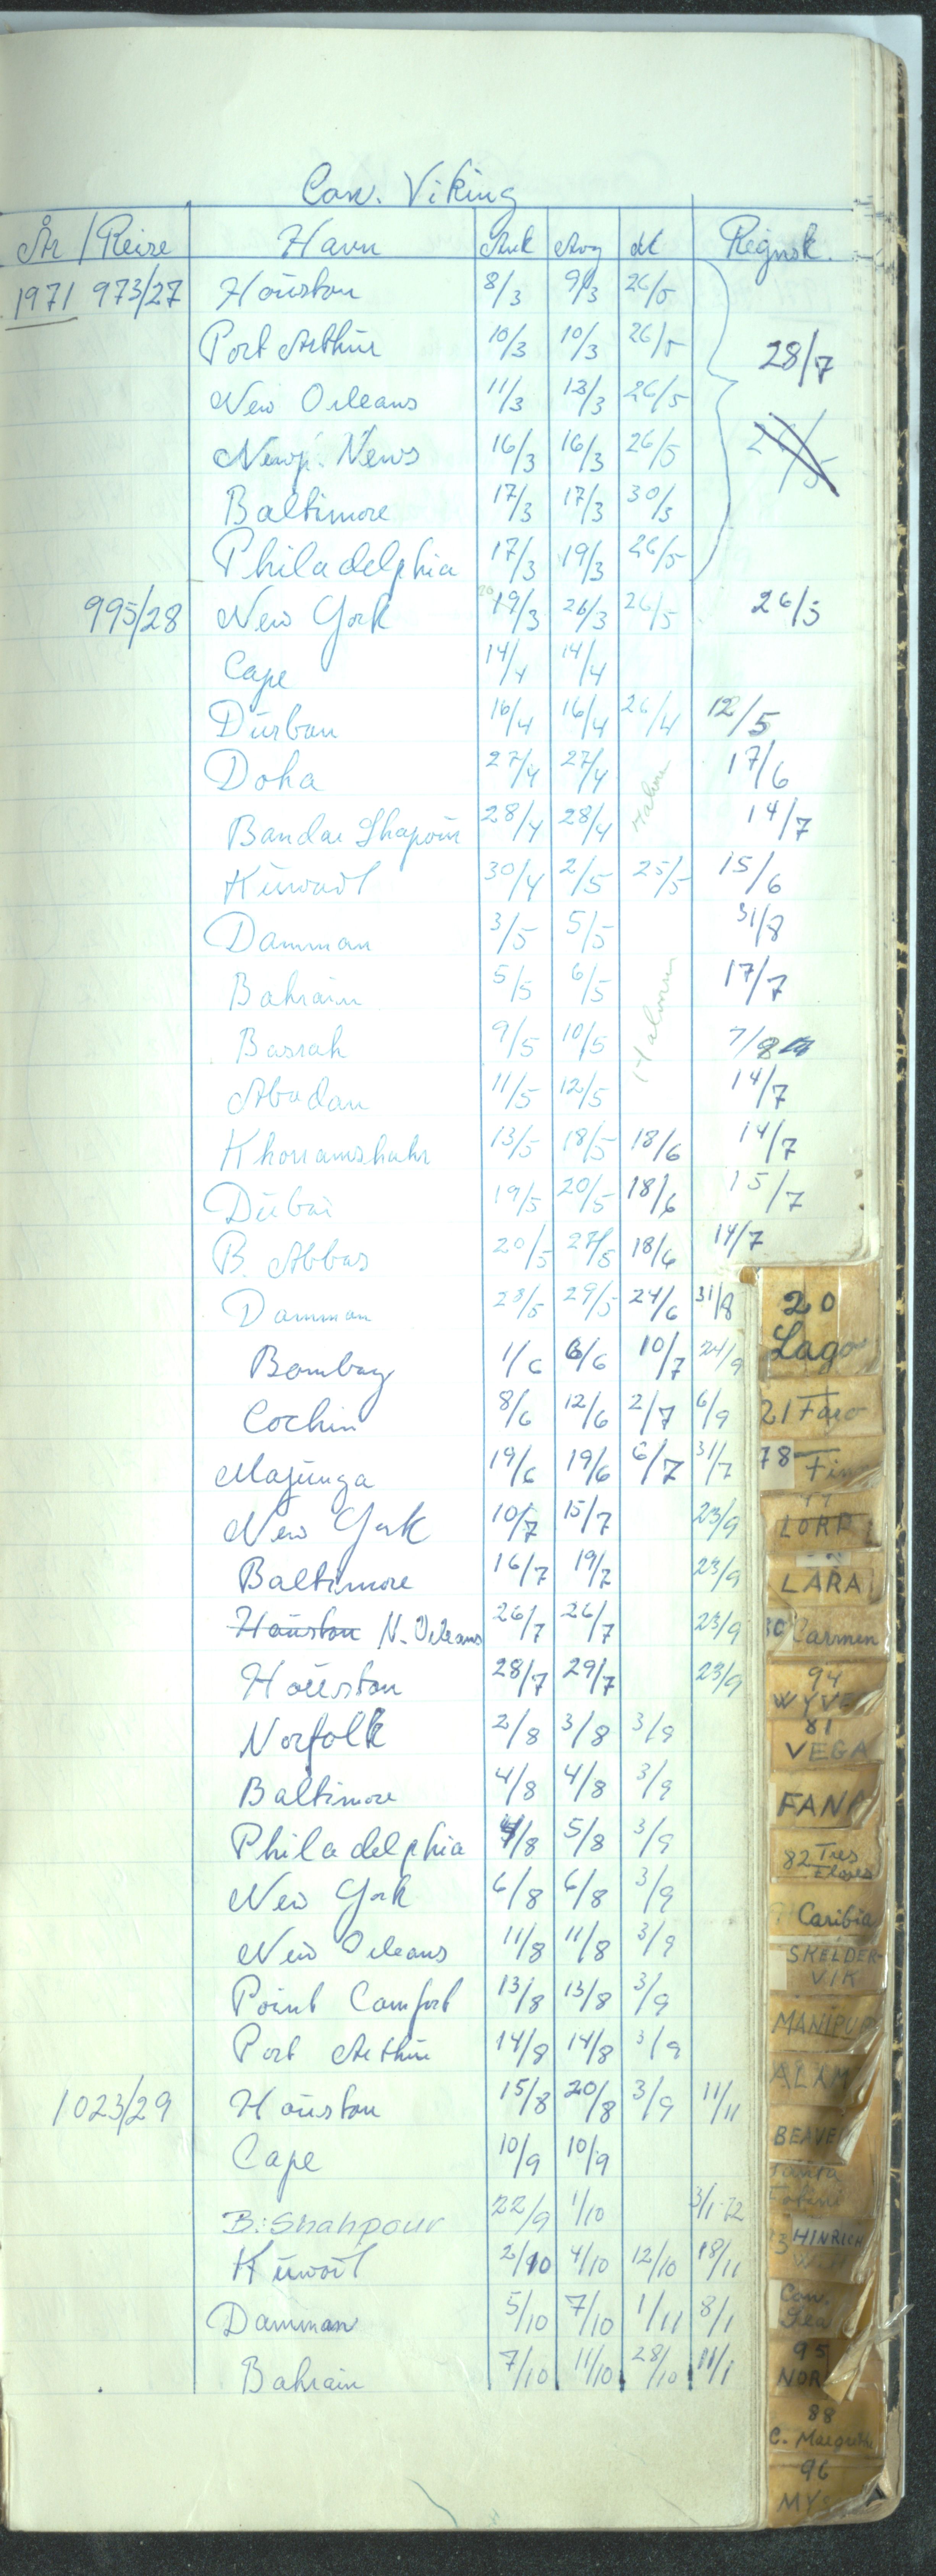 Can. Viking
År / Reise Havn Ank Avg dk Regnsk.
1971 973/27 Houston 8/3 9/3 26/5
Port Arthur 10/3 10/3 26/5 28/7
New Orleans 11/3 13/3 26/5
Newp. News 16/3 16/3 26/5
Baltimore 17/3 17/3 30/3
Philadelphia 17/3 19/3 26/5
995/28 New York 19/3 26/3 26/5 26/5
Cape 14/4 14/4
Durban 16/4 16/4 26/4 12/5
Doha 27/4 27/4 17/6
Bandar Shapour 28/4 28/4 14/7
Kuwait 30/4 2/5 25/5 15/6
Damman 3/5 5/5 31/8
Bahrain 5/5 6/5 17/7
Basrah 9/5 10/5 7/8
Abadan 11/5 12/5 14/7
Khorramshahr 13/5 18/5 18/6 14/7
Dubai 19/5 20/5 18/6 15/7
B. Abbas 20/5 27/5 18/6 14/7
Damman 28/5 29/5 24/6 31/8
Bombay 1/6 6/6 10/7 24/9
Cochin 8/6 12/6 2/7 6/9
Majunga 19/6 19/6 6/7 31/7
New York 10/7 15/7 23/9
Baltimore 16/7 19/7 23/9
Houston N. Orleans 26/7 26/7 23/9
Houston 28/7 29/7 23/9
Norfolk 2/8 3/8 3/9
Baltimore 4/8 4/8 3/9
Philadelphia 4/8 5/8 3/9
New York 6/8 6/8 3/9
New Orleans 11/8 11/8 3/9
Point Comfort 13/8 13/8 3/9
Port Arthur 14/8 14/8 3/9
1023/29 Houston 15/8 20/8 3/9 11/11
Cape 10/9 10/9
B. Shahpour 22/9 1/10 3/1-72
Kuwait 2/10 4/10 12/10 18/11
Damman 5/10 7/10 1/11 8/1
Bahrain 7/10 11/10 28/10 11/1
20
Lago
21 Faro
78
LARA
Carmen
94
WYVE
81
VEGA
FANA
82 Tres
Caribia
SKELDER-
VIK
MANIPUR
ALAM
BEAVE
HINRICH
Can.
95
NOR
88
C. Margrethe
96
MYS